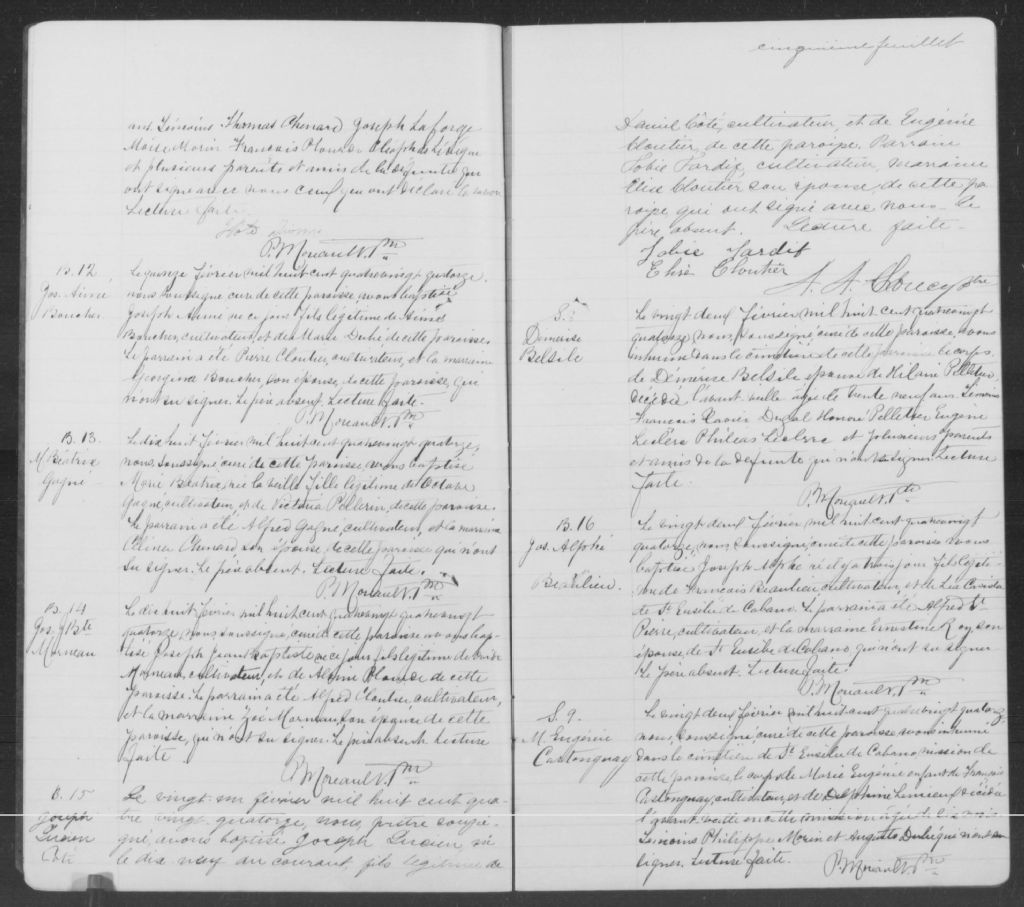 ont. Témoins Thomas Chenard Joseph Laforge
Moise Morin Francois Plourde
et plusieurs parents et amis de la défunte qui
ont signé avec nous ceux qui ont déclaré le savoir
Lecture faite.
P. Morault Ptre
B. 12
Jos. Aimé
Boucher
Le quinze février mil huit cent quatrevingt quatorze
nous soussigné curé de cette paroisse, avons baptisé
Joseph Aimé né ce jour fils légitime de
Boucher, cultivateur, et de Marie Dubé de cette paroisse.
Le parrain a été Pierre Cloutier, cultivateur, et la marraine
Georgina Boucher, son épouse, de cette paroisse, qui
n'ont su signer. Le père absent. Lecture faite.
P. Morault Ptre
B. 13.
M. Béatrix
Gagné
Le dix huit février mil huit cent quatrevingt quatorze,
nous, soussigné, curé de cette paroisse, avons baptisé
Marie Béatrix, née la veille, fille légitime de Octave
Gagné, cultivateur, et de Victoria Pellerin, de cette paroisse.
Le parrain a été Alfred Gagné, cultivateur, et la marraine
Célina Chenard son épouse, de cette paroisse qui n'ont
su signer. Le père absent. Lecture faite.
P. Morault Ptre
B. 14
Jos. J. Bte
Morneau
Le dix huit février mil huit cent quatrevingt
quatorze, nous soussigné, curé de cette paroisse avons bap-
tisé Joseph Jean baptiste né ce jour fils légitime de
Morneau, cultivateur, et de Plourde de cette
paroisse. Le parrain a été Alfred Cloutier, cultivateur,
et la marraine Zoé Morneau, son épouse de cette
paroisse, qui n'ont su signer. Le père absent. Lecture
faite
P. Morault Ptre
B. 15
Joseph
Lucien
Côté
Le vingt un février mil huit cent qua-
tre vingt quatorze, nous, prêtre soussi-
gné, avons baptisé Joseph Lucien né
le dix neuf du courant, fils légitime de
cinquième feuillet
Daniel Côté, cultivateur, et de Eugénie
Cloutier, de cette paroisse. Parrain
Tobie Tardif, cultivateur, marraine
Elise Cloutier son épouse, de cette pa-
roisse, qui ont signé avec nous. Le
père absent. Lecture faite.
Tobie Tardif
Cloutier
Ptre
S.
Démerise
Belsile
Le vingt deux février mil huit cent quatrevingt
quatorze, nous, soussigné, curé de cette paroisse, avons
inhumé dans le cimetière de cette paroisse le corps
de Démerise Belsile épouse de Hilaire Pelletier,
décédée l'avant veille agée de trente neuf ans. Témoins
Francois Xavier Honoré Pelletier Eugène
Leclerc Philéas Leclerc et plusieurs parents
et amis de la défunte qui n'ont su signer. Lecture
faite.
P. Morault Ptre
B. 16
Jos. Alphé
Beaulieu.
Le vingt deux février mil huit cent quatrevingt
quatorze, nous soussigné, curé de cette paroisse avons
baptisé Joseph Alphé né il y a trois jours fils légiti-
me de Francois Beaulieu, cultivateur, et de Léa
de St. Eusèbe de Cabano. Le parrain a été Alfred St.
Pierre, cultivateur, et la marraine Ernestine Roy, son
épouse, de St. Eusèbe de Cabano, qui n'ont su signer
Le père absent. Lecture faite.
P. Morault Ptre
S. 9.
M. Eugénie
Castonguay
Le vingt deux février mil huit cent quatrevingt quatorze
nous, soussigné, curé de cette paroisse, avons inhumé
dans le cimetière de St. Eusèbe de Cabano, mission de
cette paroisse, le corps de Marie Eugénie enfant de Francois
Castonguay, cultivateur, et de Delphine Lemieux, décédée
l'avant veille en cette mission agée de dix mois
Témoins Philippe Morin et Auguste Dubé qui n'ont su
signer. Lecture faite.
P. Morault Ptre